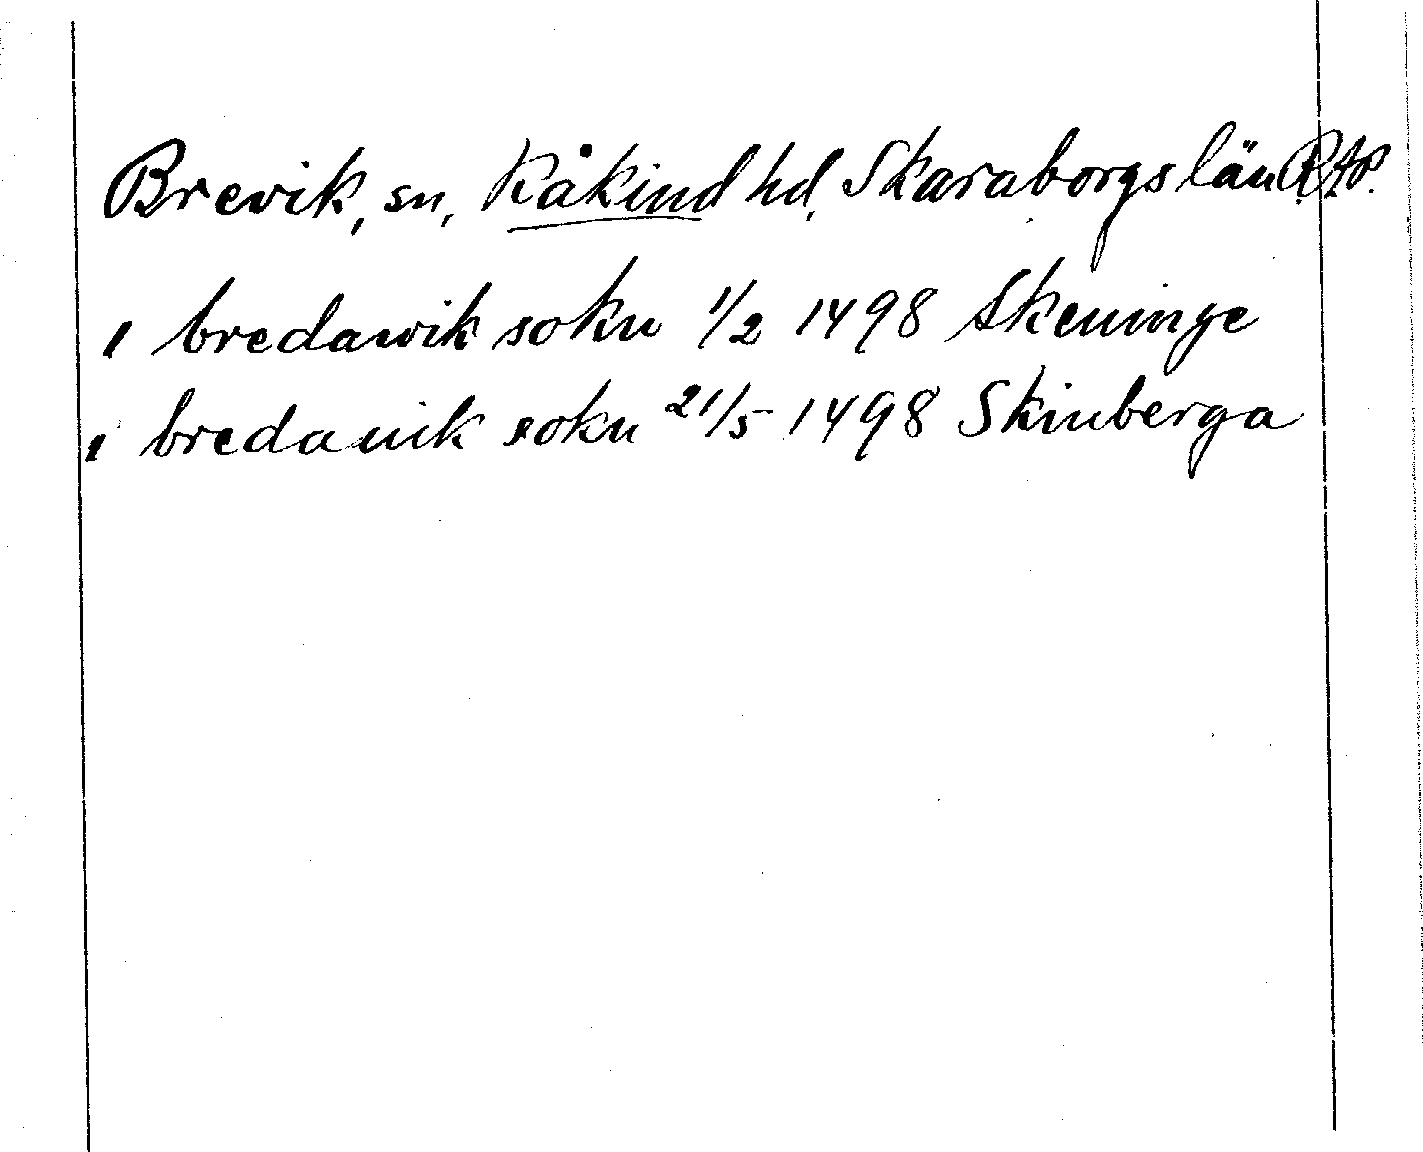 Brevik, sn, Kåkind hd, Skaraborgs län RAP.
i bredawik sokn 1/2 1498 Skeninge
i bredauik sokn 21/5 1498 Skinberga